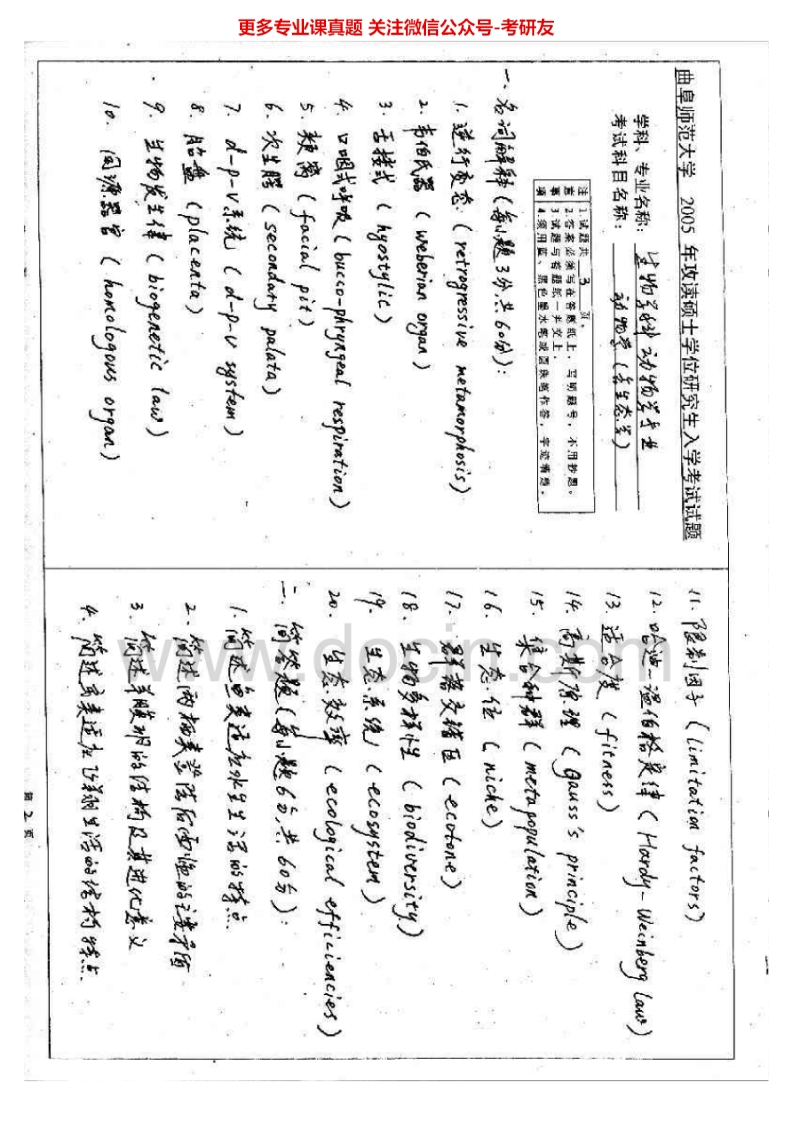 更多专业课真题 关注微信公众号-考研友
曲阜师范大学 2005 年攻读硕士学位研究生入学考试试题
学科、专业名称: 生物学科 动物学专业
考试科目名称: 动物学(含生态学)
注意事项
1.试题共 3 页。
2.答案必须写在答题纸上,写明题号,不用抄题。
3.试题与答题纸一并交上。
4.须用蓝、黑色墨水笔或圆珠笔作答,字迹清楚。
一、名词解释(每小题3分,共60分):
1. 逆行变态 (retrogressive metamorphosis)
2. 韦伯氏器 (weberian organ)
3. 舌接式 (hyostylic)
4. 口咽式呼吸 (bucco-phryngeal respiration)
5. 颊窝 (facial pit)
6. 次生腭 (secondary palata)
7. d-p-v系统 (d-p-v system)
8. 胎盘 (placenta)
9. 生物发生律 (biogenetic law)
10. 同源器官 (homologous organ)
11. 限制因子 (limitation factors)
12. 哈迪-温伯格定律 (Hardy-Weinberg law)
13. 适合度 (fitness)
14. 高斯原理 (Gauss's principle)
15. 集合种群 (metapopulation)
16. 生态位 (niche)
17. 群落交错区 (ecotone)
18. 生物多样性 (biodiversity)
19. 生态系统 (ecosystem)
20. 生态效率 (ecological efficiencies)
二、简答题(每小题6分,共60分):
1. 简述鱼类适应水生生活的特点
2. 简述两栖类登陆后面临的主要矛盾
3. 简述羊膜卵的结构及其进化意义
4. 简述鸟类适应飞翔生活的结构特点
第 2 页
www.docin.com